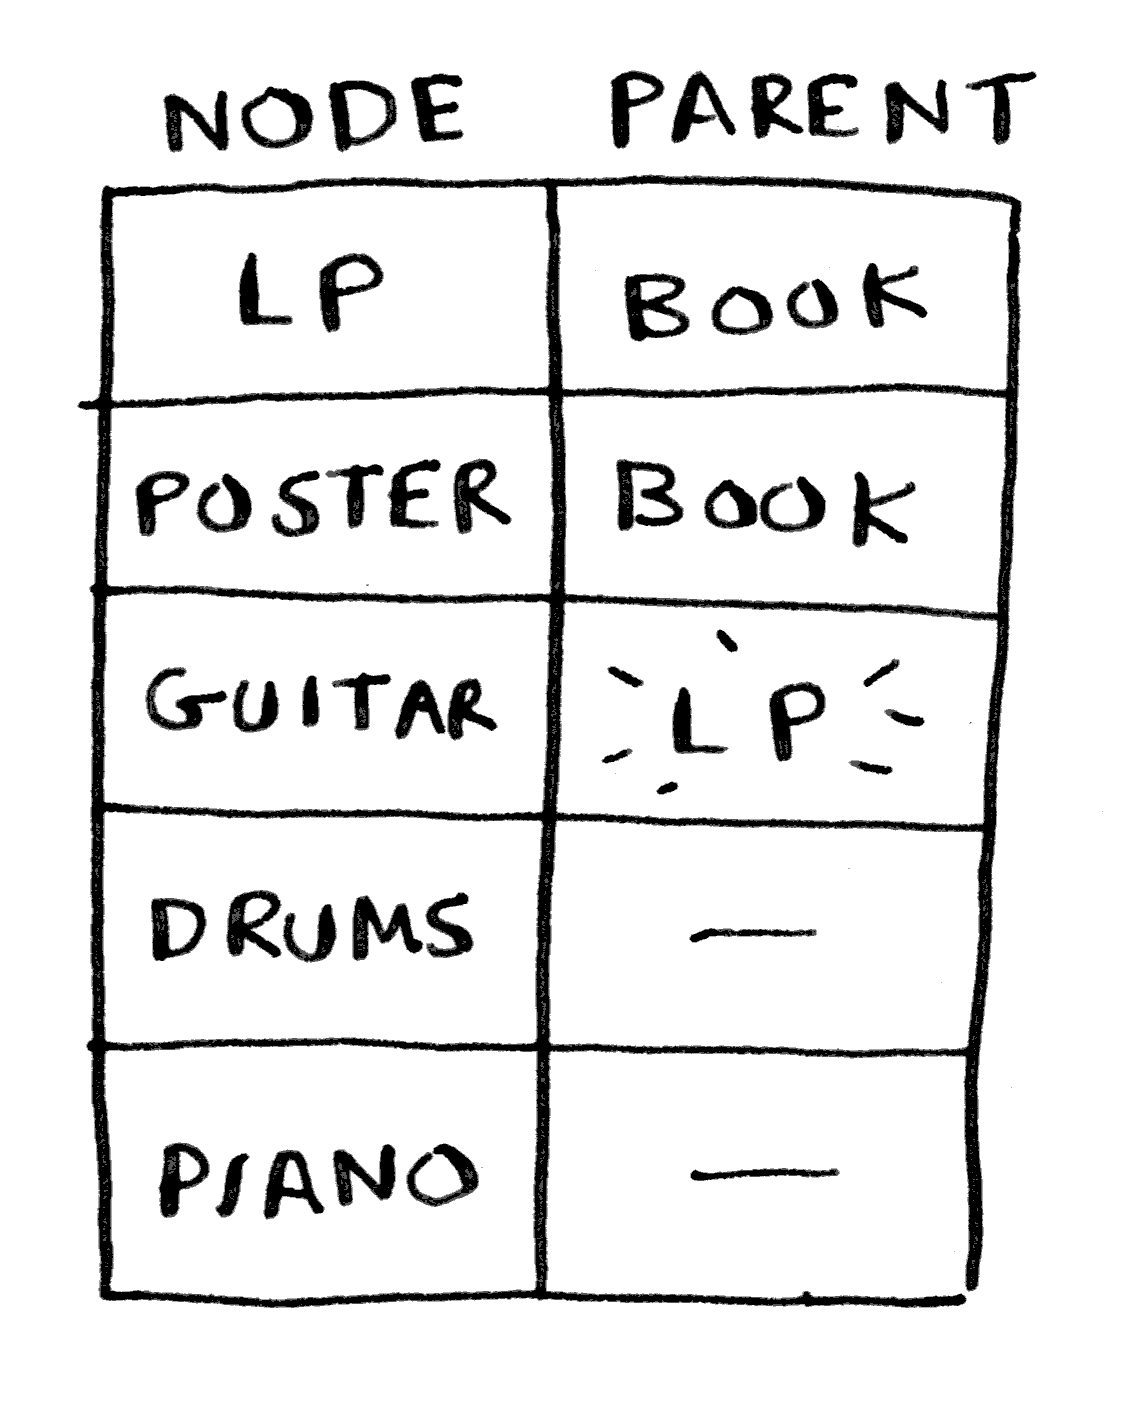 NODE PARENT
LP BOOK
POSTER BOOK
GUITAR LP
DRUMS —
PIANO —